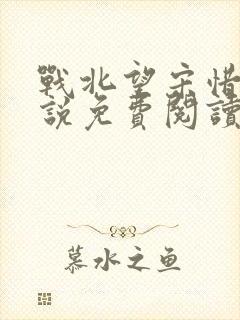 戰北望宋惜
說免費閱讀
慕水之鱼